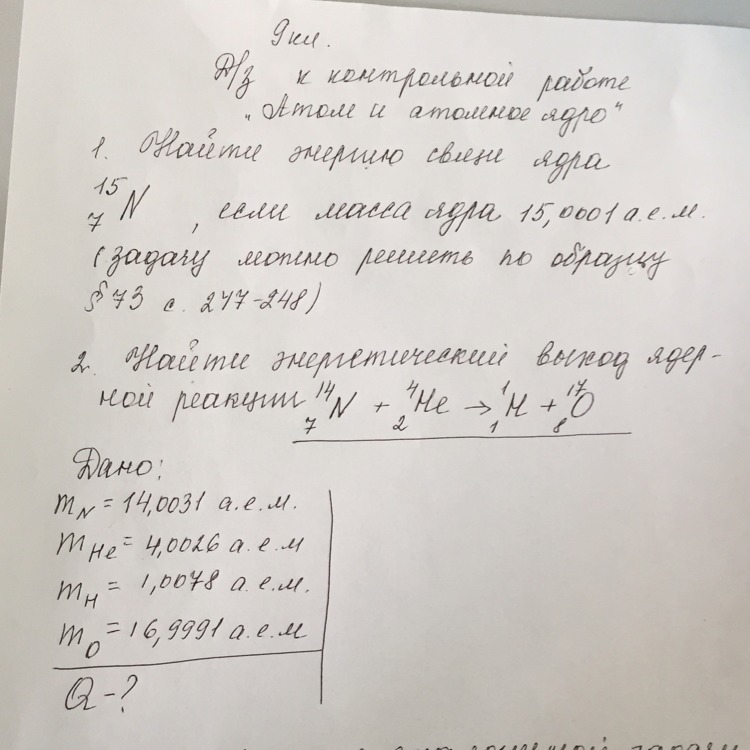 9 кл.
Д/з к контрольной работе
"Атом и атомное ядро"
1. Найти энергию связи ядра
¹⁵₇N, если масса ядра 15,0001 а.е.м.
(задачу можно решить по образцу
§ 73 с. 247-248)
2. Найти энергетический выход ядер-
ной реакции ¹⁴₇N + ⁴₂He → ¹₁H + ¹⁷₈O
Дано:
m_N = 14,0031 а.е.м.
m_He = 4,0026 а.е.м
m_H = 1,0078 а.е.м.
m_O = 16,9991 а.е.м
Q - ?